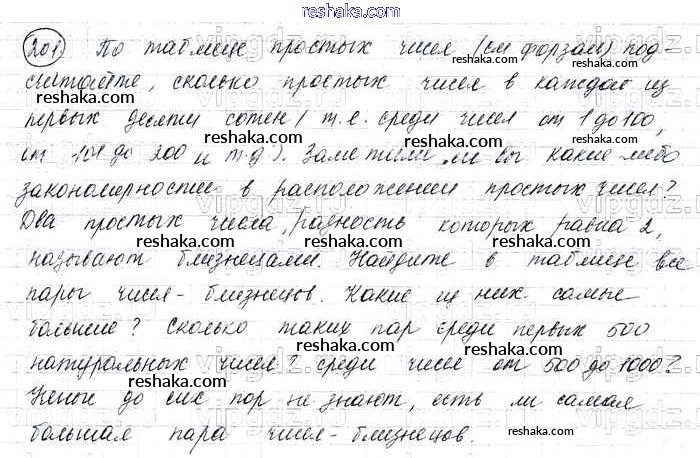 reshaka.com
201 По таблице простых чисел (см форзац) под-
считайте, сколько простых чисел в каждой из
первых десяти сотен (т.е. среди чисел от 1 до 100,
от 101 до 200 и т.д.). Заметили ли вы какие либо
закономерности в расположении простых чисел?
Два простых числа, разность которых равна 2,
называют близнецами. Найдите в таблице все
пары чисел-близнецов. Какие из них самые
большие? Сколько таких пар среди первых 500
натуральных чисел? среди чисел от 500 до 1000?
до сих пор не знают, есть ли самая
большая пара чисел-близнецов.